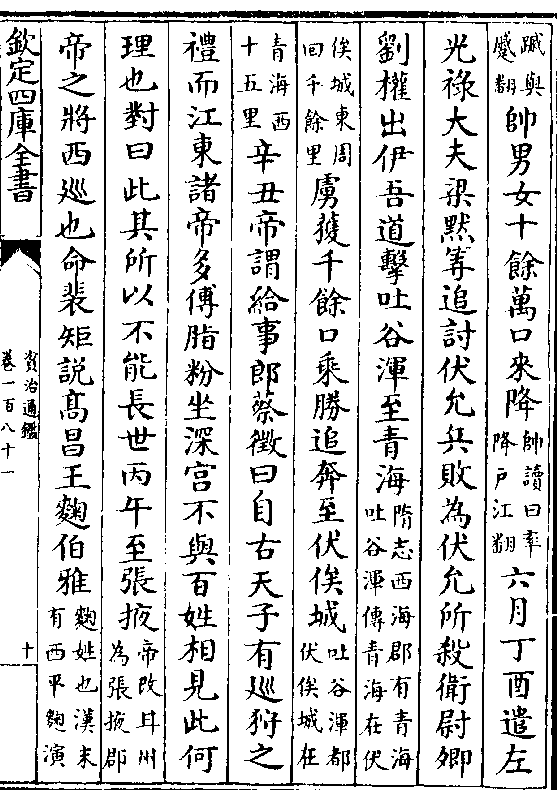 與
蹙翻
帥男女十餘萬口來降
帥讀曰率
降戶江翻
六月丁酉遣左
光祿大夫梁黙等追討伏允兵敗為伏允所殺衛尉卿
劉權出伊吾道擊吐谷渾至青海
隋志西海郡有青海
吐谷渾傳青海在伏
俟城東周
回千餘里
虜獲千餘口乘勝追奔至伏俟城
吐谷渾都
伏俟城在
青海西
十五里
辛丑帝謂給事郎蔡徵曰自古天子有廵狩之
禮而江東諸帝多傅脂粉坐深宫不與百姓相見此何
理也對曰此其所以不能長世丙午至張掖
帝改甘州
為張掖郡
帝之將西廵也命裴矩說髙昌王麴伯雅
麴姓也漢末
有西平麴演
欽定四庫全書
資治通鑑
卷一百八十一
十